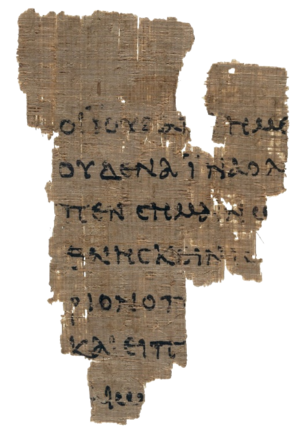 ΟΙ ΙΟΥΔΑΙ ΗΜΕ
ΟΥΔΕΝΑ ΪΝΑ Ο Λ
ΠΕΝ ΣΗΜΑΙΝΩ
ΘΝΗΣΚΕΙΝ ΙΣ
ΡΙΟΝ Ο Π
ΚΑΙ ΕΙΠ